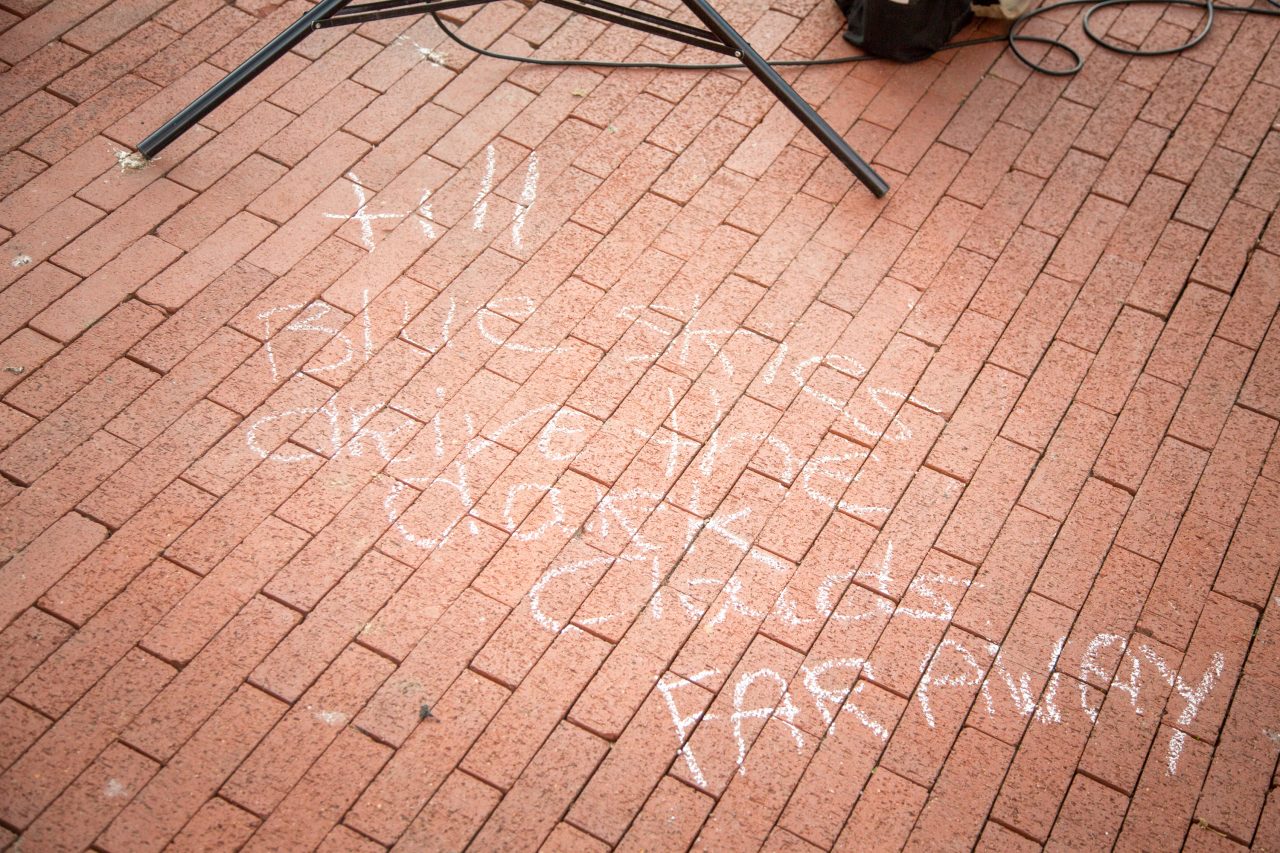 till
Blue skies
drive the
dark
Clouds
FAR AWAY